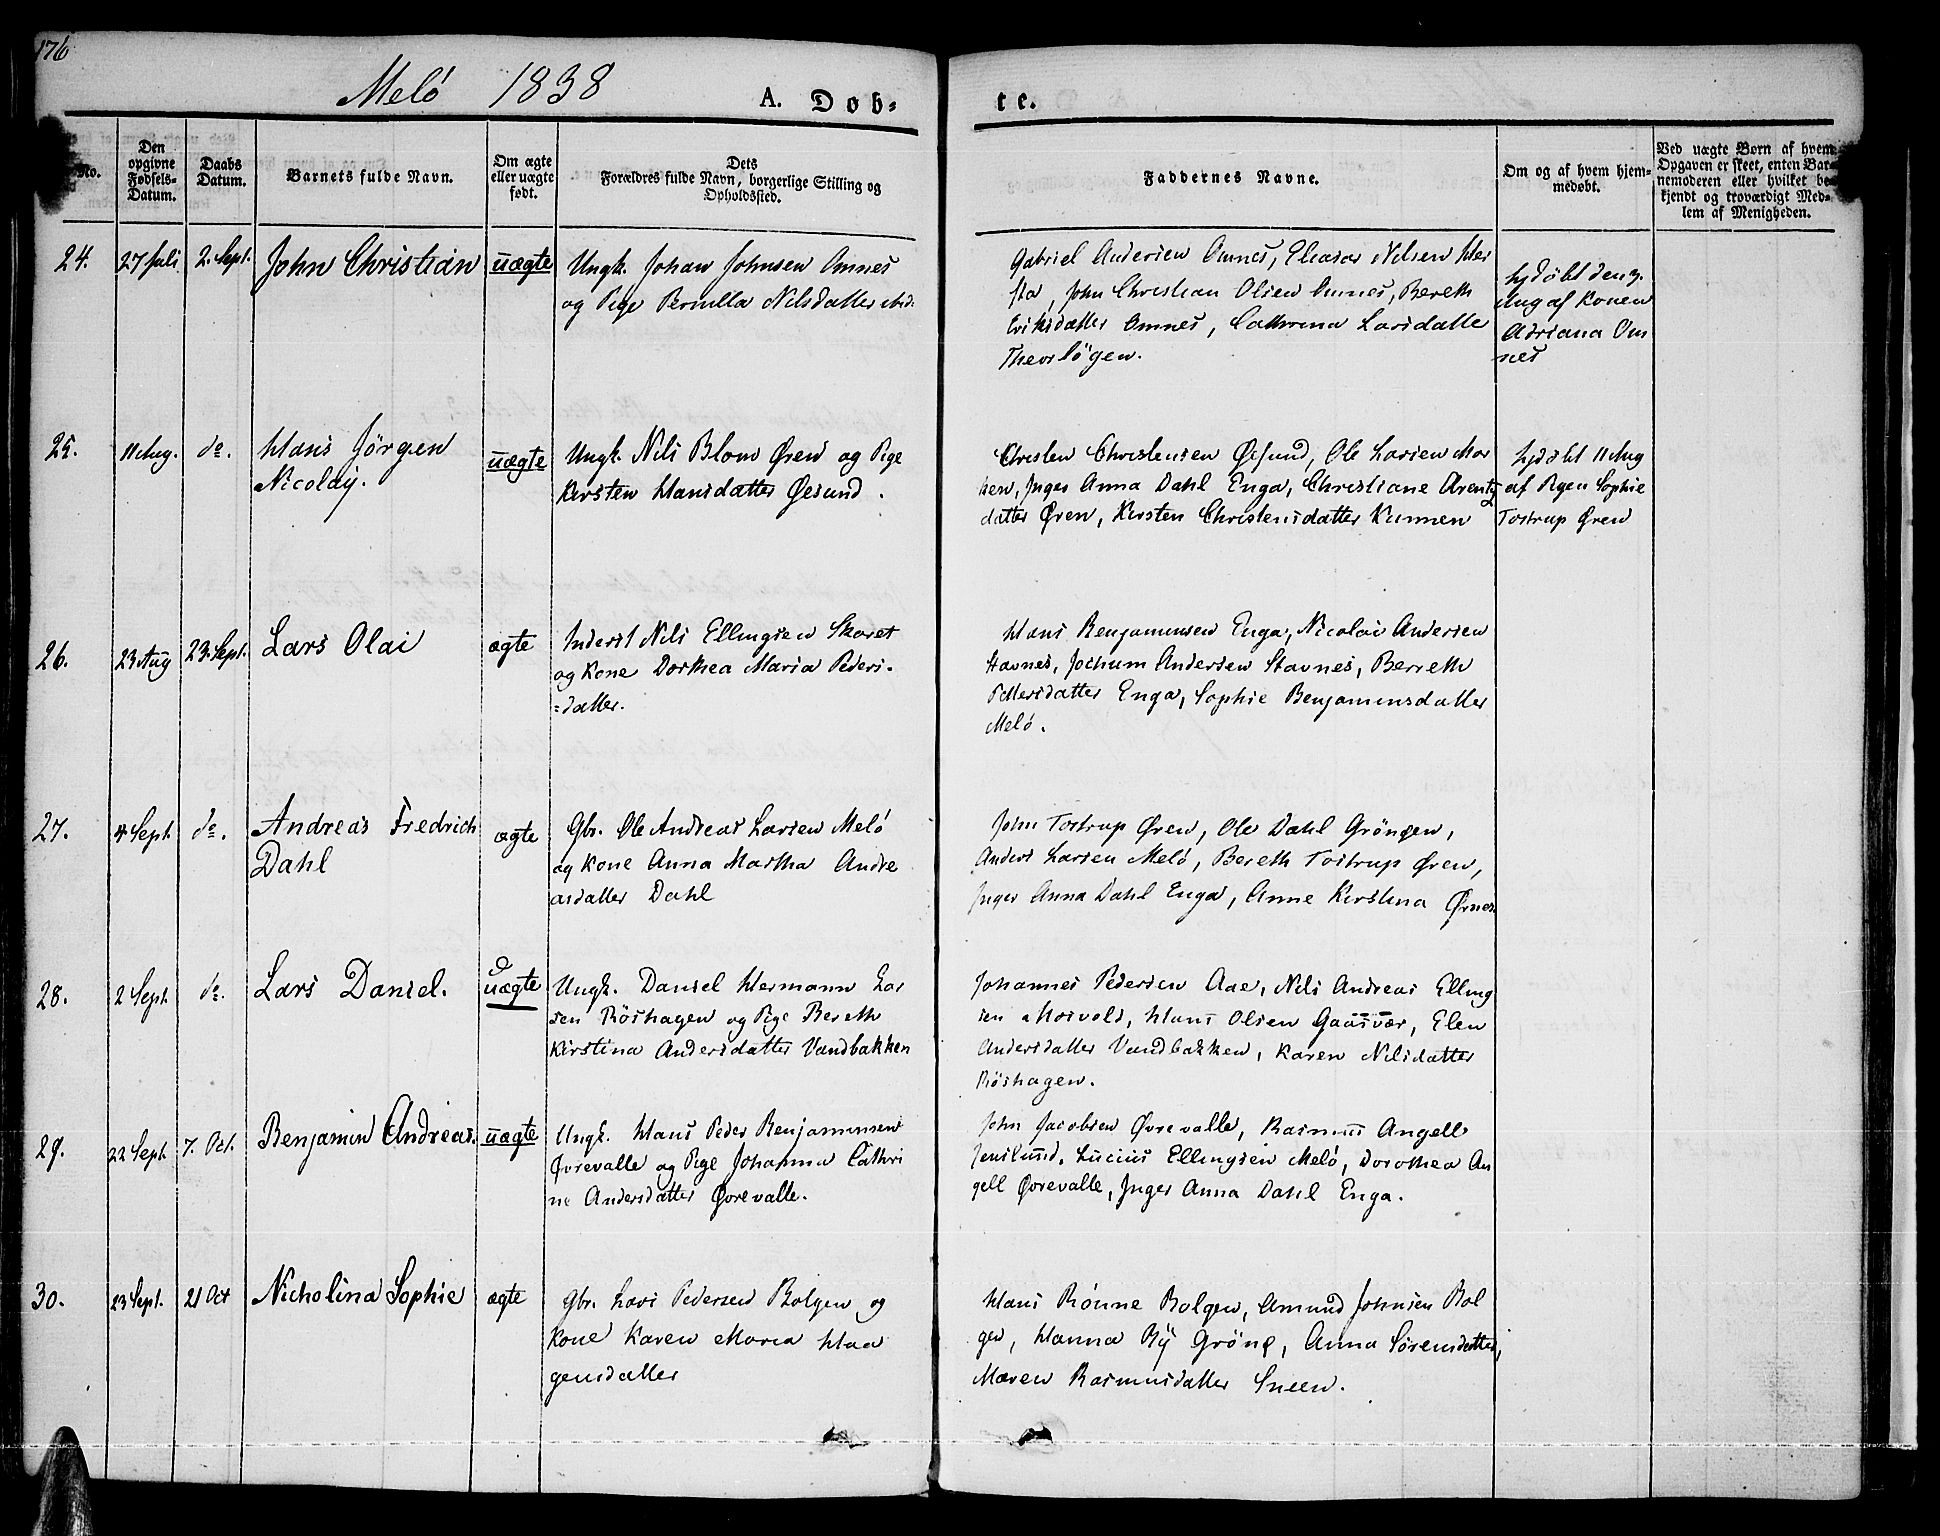 176
Melö 1838 A. Dob-
te.
No.
Den
opgivne
Fødsels-
Datum.
Daabs
Datum.
Barnets fulde Navn.
Om ægte
eller uægte
født.
Dets
Forældres fulde Navn, borgerlige Stilling og
Opholdssted.
Faddernes Navne.
Om og af hvem hjem-
medøbt.
Ved uægte Børn af hvem
Opgaven er skeet, enten Bar-
nemoderen eller hvilket be-
kjendt og troværdigt Med-
lem af Menigheden.
24. 27 Juli 2. Sept. John Christian uægte
Ungk. Johan Johnsen Omnes
og Pige Pernilla Nilsdatter ibid.
Gabriel Andersen Omnes, Eleasar Nilsen Mes
sta, John Christian Olsen Omnes, Bereth
Eriksdatter Omnes, Cathrina Larsdatte
Theorlögen.
hjdöbt den 3.
Aug af Konen
Adriana Om
nes
25. 11 Aug. do. Hans Jörgen
Nicolay.
uægte
Ungk. Nils Blom Øren og Pige
Kirsten Hansdatter Øesund.
Christen Christensen Øesund, Ole Larsen Mos
ken, Inger Anna Dahl Enga, Christiane Arents
datter Øren, Kirsten Christensdatter Kunnen
hjdöbt 11 Aug
af Pigen Sophie
Tostrup Øren
26. 23 Aug 23. Sept. Lars Olai ægte
Inderst Nils Ellingsen Skaret
og Kone Dorthea Maria Peders-
=datter.
Hans Benjaminsen Enga, Nicolai Andersen
Stavnes, Jochum Andersen Stavnes, Berreth
Pettersdatter Enga, Sophie Benjaminsdatter
Melö.
27. 4 Sept. do. Andreas Fredrich
Dahl
ægte
Gbr. Ole Andreas Larsen Melö
og Kone Anna Martha Andre
asdatter Dahl
John Tostrup Øren, Ole Dahl Gröngen,
Anders Larsen Melö, Bereth Tostrup Øren,
Inger Anna Dahl Enga, Anne Kirstina Ørnes
28. 2 Sept. do. Lars Daniel. uægte
Ungk. Daniel Hermann Lar
sen Röshagen og Pige Bereth
Kirstina Andersdatter Vandbakken
Johannes Pedersen Aae, Nils Andreas Elling
sen Mosvold, Hans Olsen Gaasvær, Elen
Andersdatter Vandbakken, Karen Nilsdatter
Röshagen.
29. 22 Sept. 7. Oct. Benjamin Andreas. uægte
Ungk. Hans Peder Benjaminsen
Øvrevalle og Pige Johanna Cathri
ne Andersdatter Øvrevalle.
John Jacobsen Øvrevalle, Rasmus Angell
Jenslund, Lucius Ellingsen Melö, Dorothea An
gell Øvrevalle, Inger Anna Dahl Enga.
30. 23 Sept. 21 Oct Nicholina Sophie ægte
Gbr. Lars Pedersen Bolgen og
Kone Karen Maria Haa
gensdatter
Hans Rönne Bolgen, Amund Johnsen Bol
gen, Hanna By Gröng, Anna Sörensdatter,
Maren Rasmusdatter Sneen.